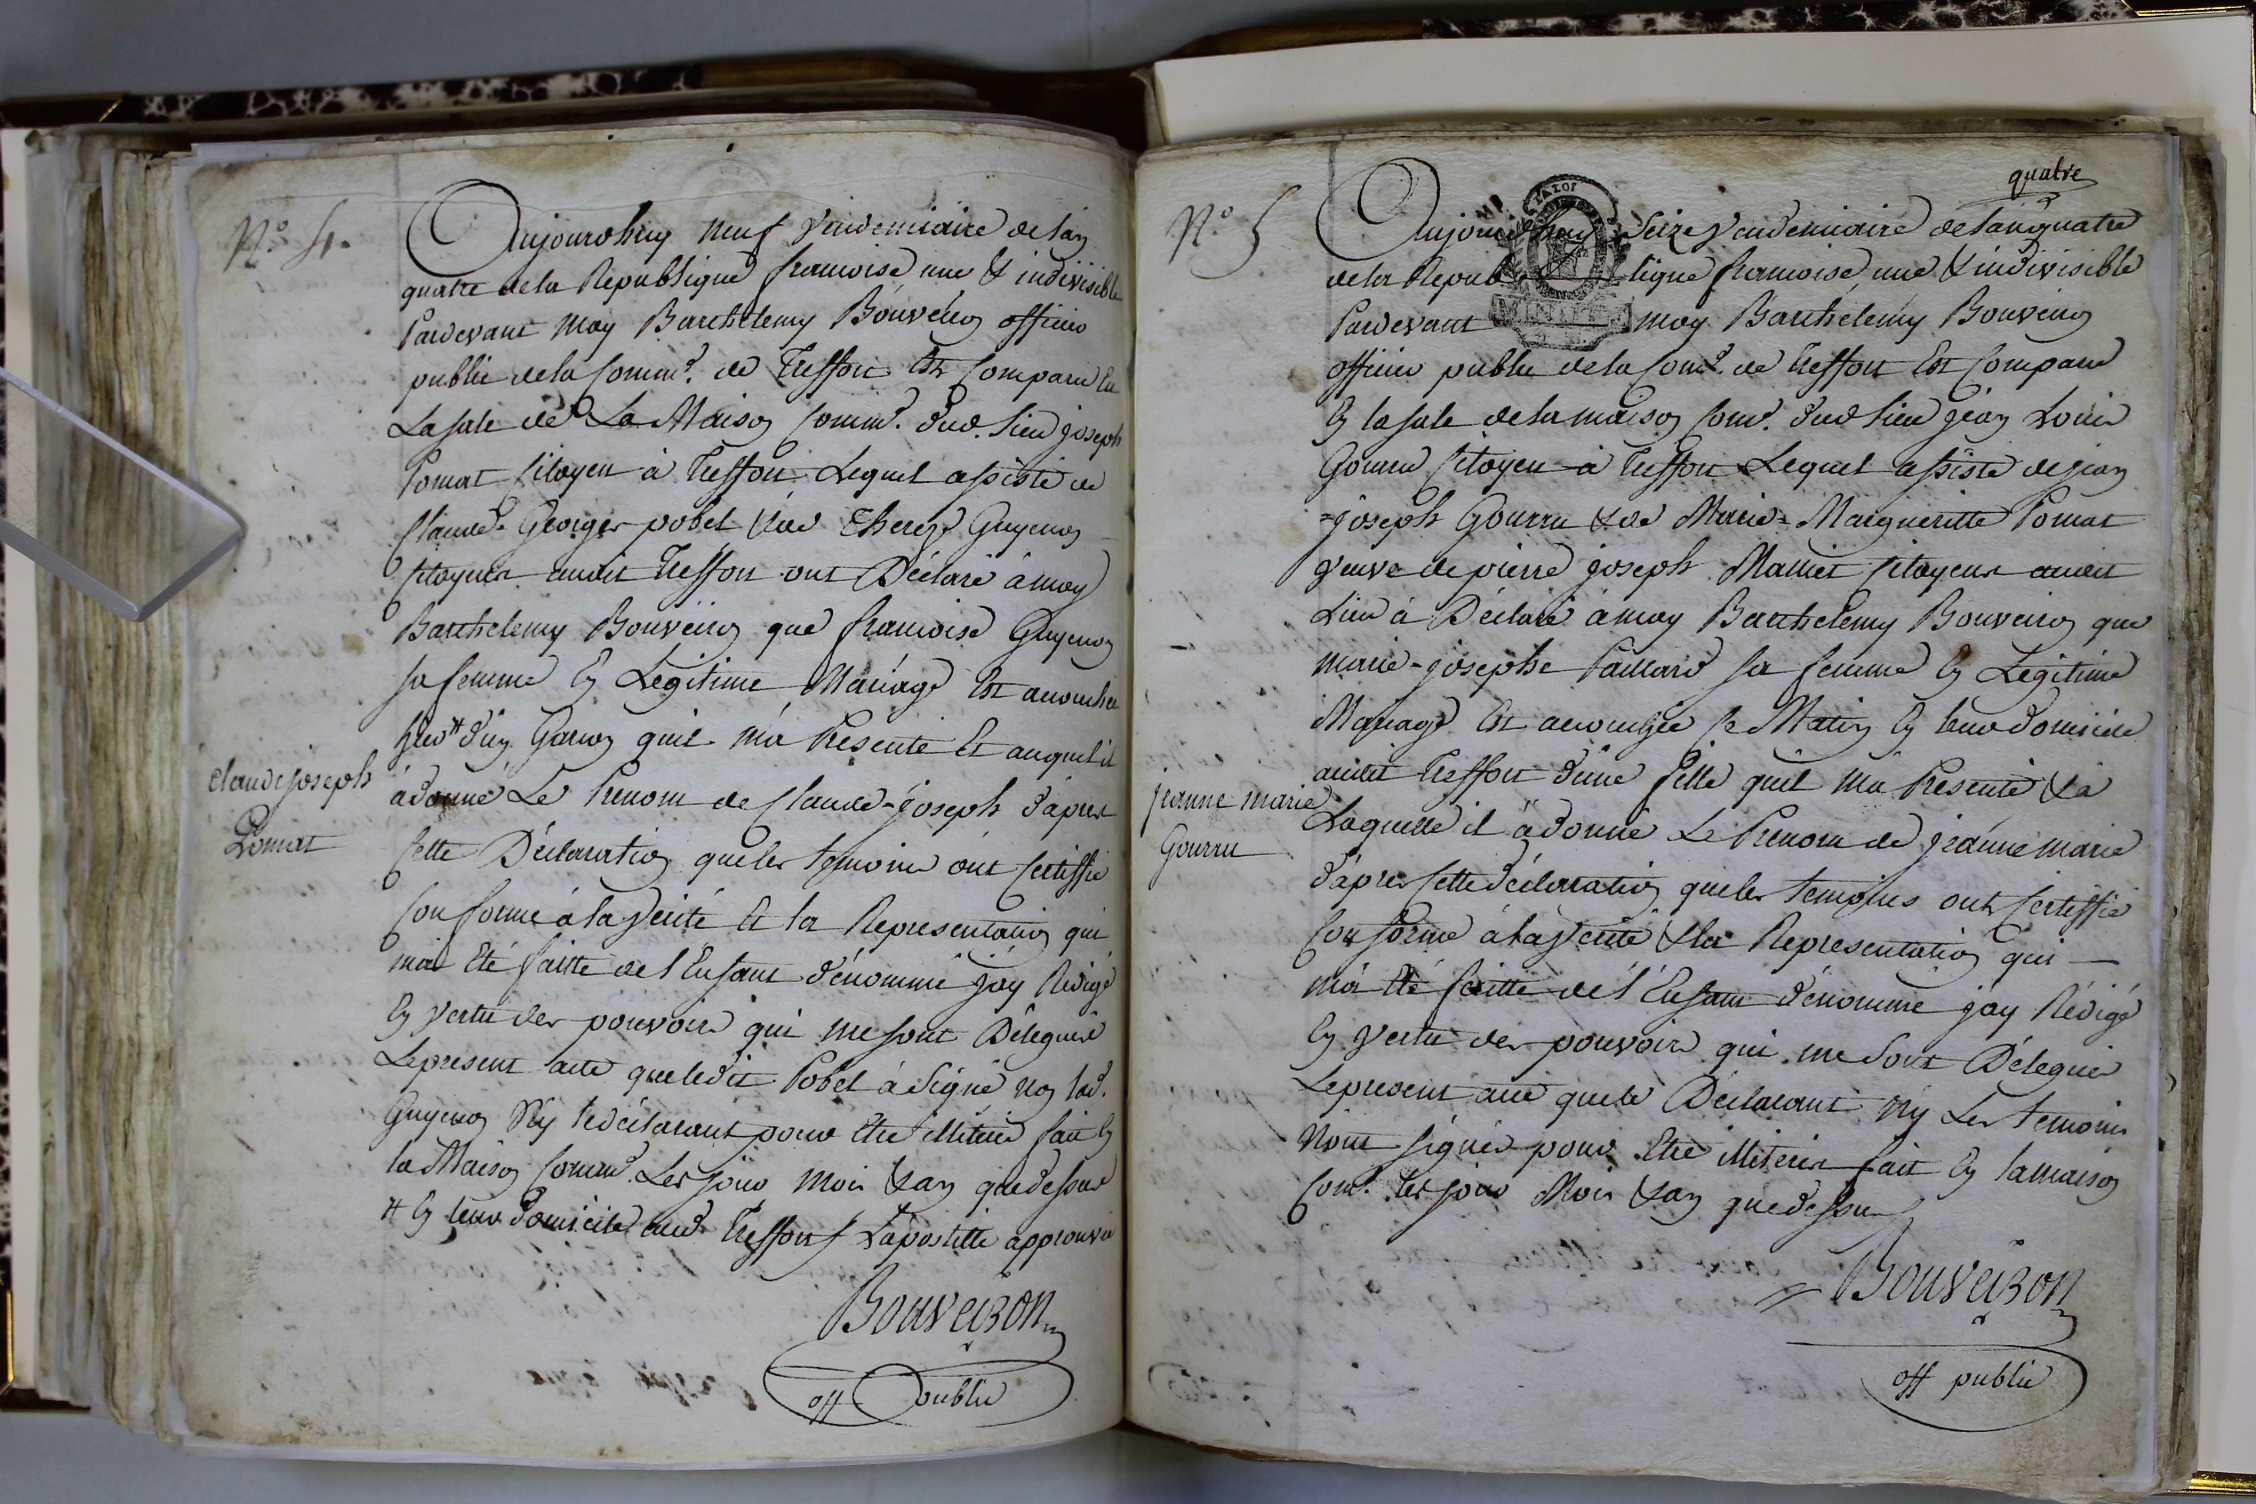 N.o 4.
Aujourdhuy neuf vendemiaire de lan
quatre de la Republique francoise une & indivisible
Pardevant moy Barthelemy Bouveiron officier
public de la Comm.e de Treffort Est Comparu En
La sale de La Maison Comm.e dud. lieu joseph
Pomat Citoyen à Treffort Lequel assisté de
Claude Georges pobel & de Thereze Guyenon
Citoyens audit Treffort ont Déclaré à moy
Barthelemy Bouveiron que francoise Guyenon
sa femme En Legitime Mariage Est accouchée
d'un Garcon quil m'a Présenté Et auquel il
claude joseph
Pomat
à donné Le Prenom de Claude-joseph d'apres
Cette Déclaration que les temoins ont Certiffié
Conforme à la vérité Et la Representation qui
m'a Eté faitte de l'Enfant dénommé j'ay Rédigé
En vertu des pouvoirs qui me sont Délegués
Le present acte que ledit Pobel à signé non lad.
Guyenon N'y le déclarant pour Etre illiteré fait En
la Maison Comm.e Les jour Mois & an que dessus
# En leur domicile aud. Treffort L'apostille approuvée
Bouveiron
off public
quatre
N.o 5
Aujourdhuy Seize vendemiaire de lan quatre
de la Republique francoise une & indivisible
Pardevant moy Barthélemy Bouveiron
officier public de la Com.e de Treffort Est Comparu
En la sale de la maison Com.e dud lieu jean Louis
Gourru Citoyen à Treffort Lequel assisté de jean
=joseph Gourru & de Marie=Margueritte Pomat
veuve de pierre joseph Citoyens audit
Lieu à Déclaré à moy Barthelemy Bouveiron que
marie-josephe sa femme En Légitime
Mariage Est accouchée ce Matin En leur domicile
audit Treffort d'une fille quil m'a Présenté & à
jeanne marie
Gourru
Laquelle il à donné Le Prenom de jeanne marie
d'apres Cette déclaration que les temoins ont Certiffié
Conforme à la vérité & la Representation qui —
m'a Eté faitte de l'Enfant dénommé j'ay Rédigé
En vertu des pouvoirs qui me sont Délegués
Le present acte que le Déclarant N'y Les temoins
N'ont signés pour Etre illiterés fait En la maison
Com.e les jour Mois & an que dessus
Bouveiron
off public